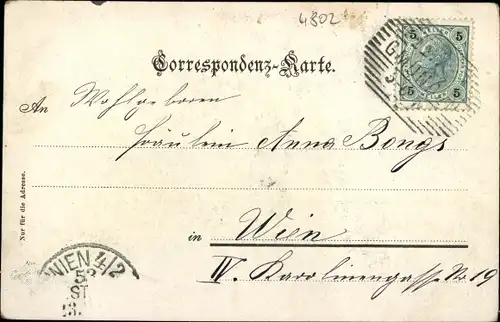 4802
5 5
Correspondenz-Karte.
5 5
An Wohlgeboren
Fräulein Anna Bongs
in Wien
IV. Karolinengasse No 19
Nur für die Adresse.
WIEN 4/2
52
ST